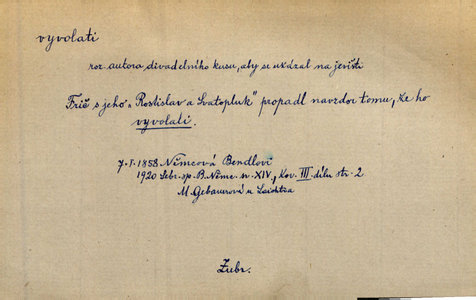 vyvolati
roz. autora divadelního kusu, aby se ukázal na jevišti
Frič s jeho „Rostislav a Svatopluk" propadl navzdor tomu, že ho
vyvolali.
1858 Němcová Bendlovi
1920 Sebr. sp. B. Němc. sv. XIV, Kor. III. dílu str. 2
M. Gebauerová u Laichtra
Zubr.